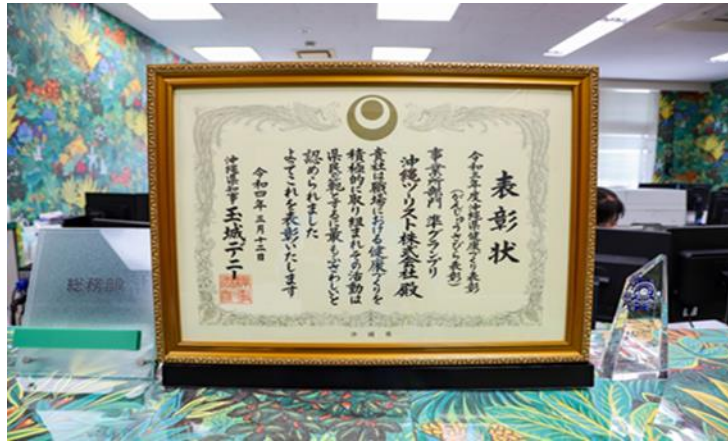 表彰状
令和三年度沖縄県健康づくり表彰
(がんじゅうさびら表彰)
事業所部門 準グランプリ
沖縄ツーリスト株式会社 殿
貴社は職場における健康づくりを
積極的に取り組まれその活動は
県民の範とするに最もふさわしいと
認められました
よってこれを表彰いたします
令和四年三月十二日
沖縄県知事 玉城デニー
沖縄県
総務部